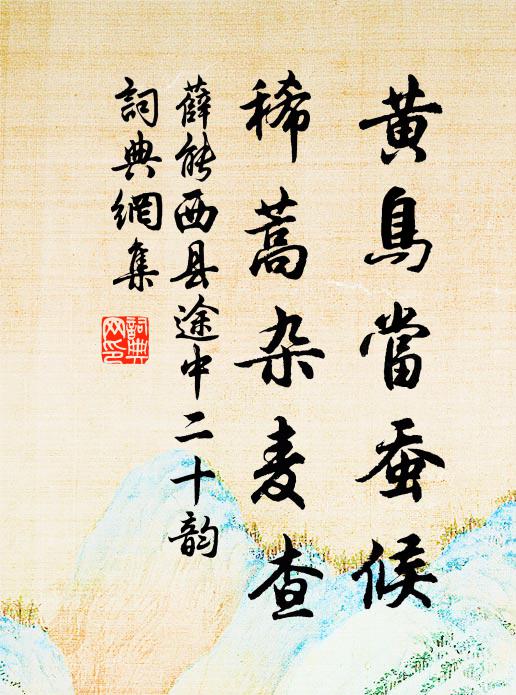 黄鳥當蚕候
稀蒿杂麦查
薛能西县途中二十韵
詞典網集
詞典
网印